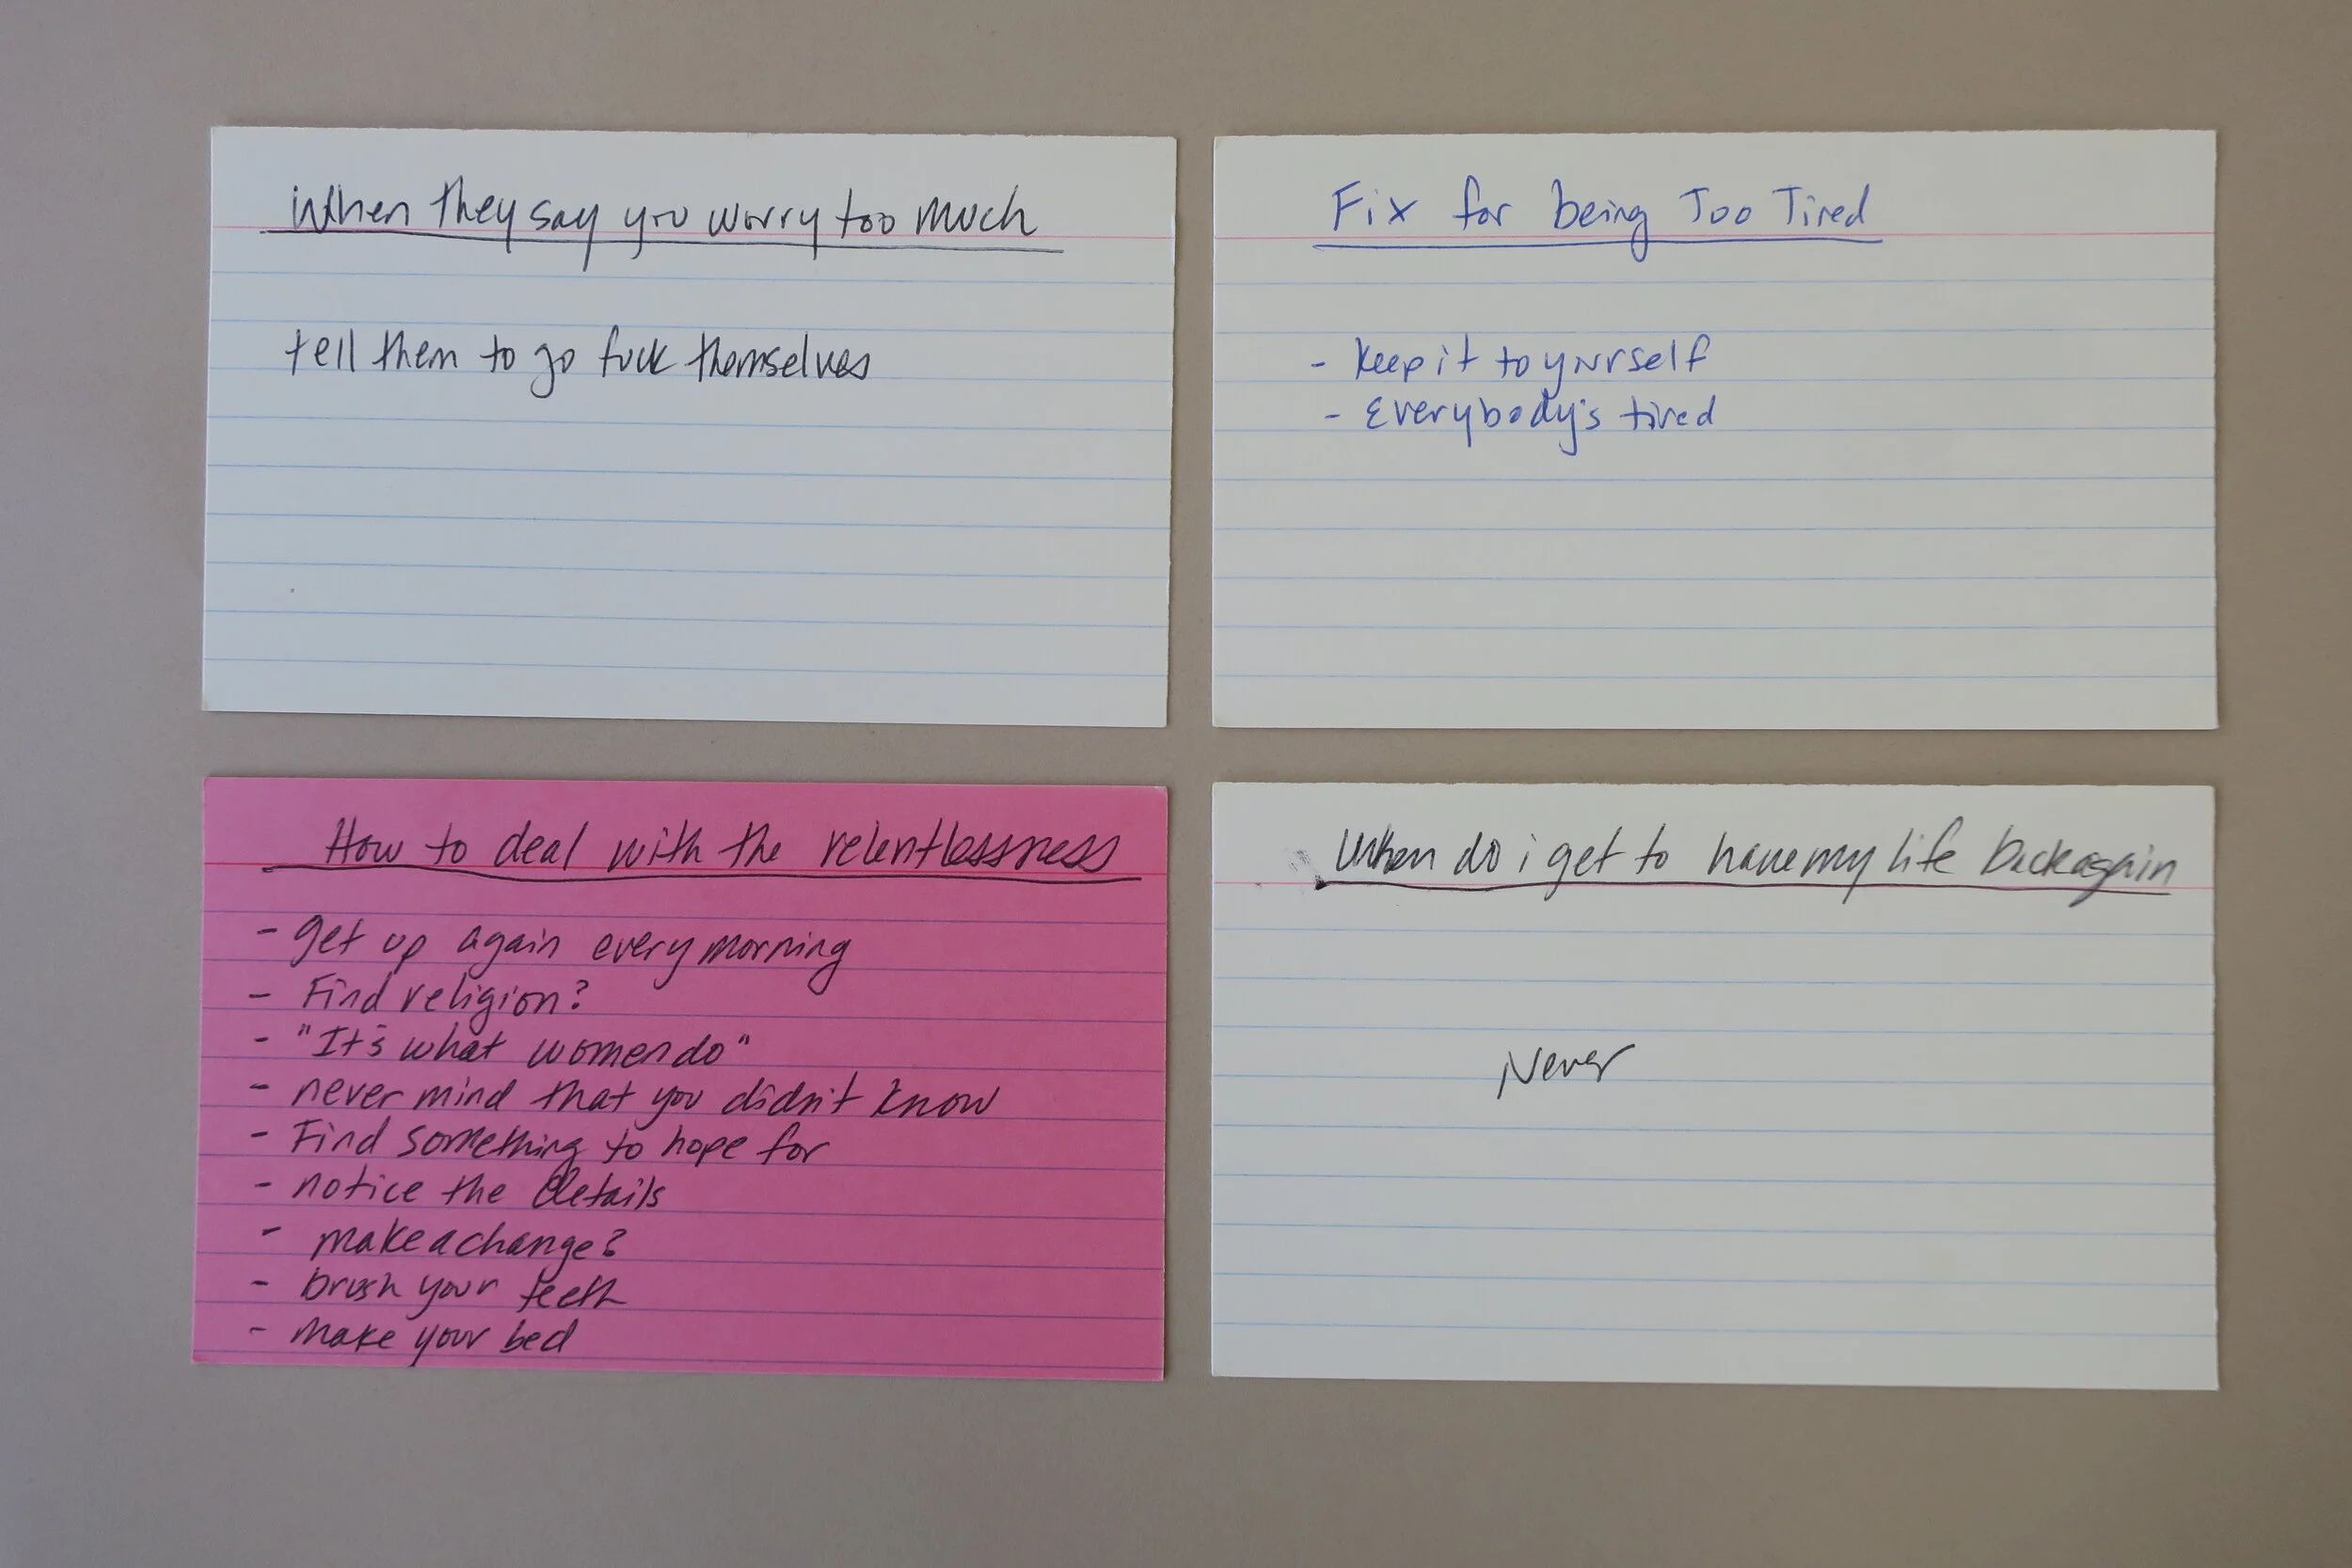 When they say you worry too much
tell them to go fuck themselves
Fix for being Too Tired
- Keep it to yourself
- Everybody's tired
How to deal with the relentlessness
- get up again every morning
- Find religion?
- "It's what women do"
- never mind that you didn't know
- Find something to hope for
- notice the details
- make a change?
- brush your teeth
- make your bed
When do i get to have my life back again
Never